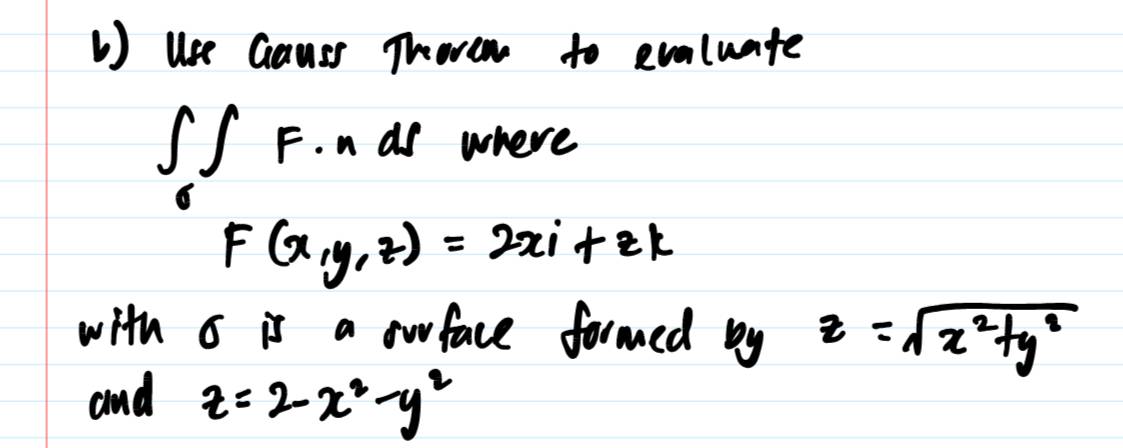 b) Use Gauss Theorem to evaluate
∫∫ F.n ds where
σ
F(x,y,z) = 2xi + zk
with σ is a surface formed by z = √(x²+y²)
and z = 2-x²-y²